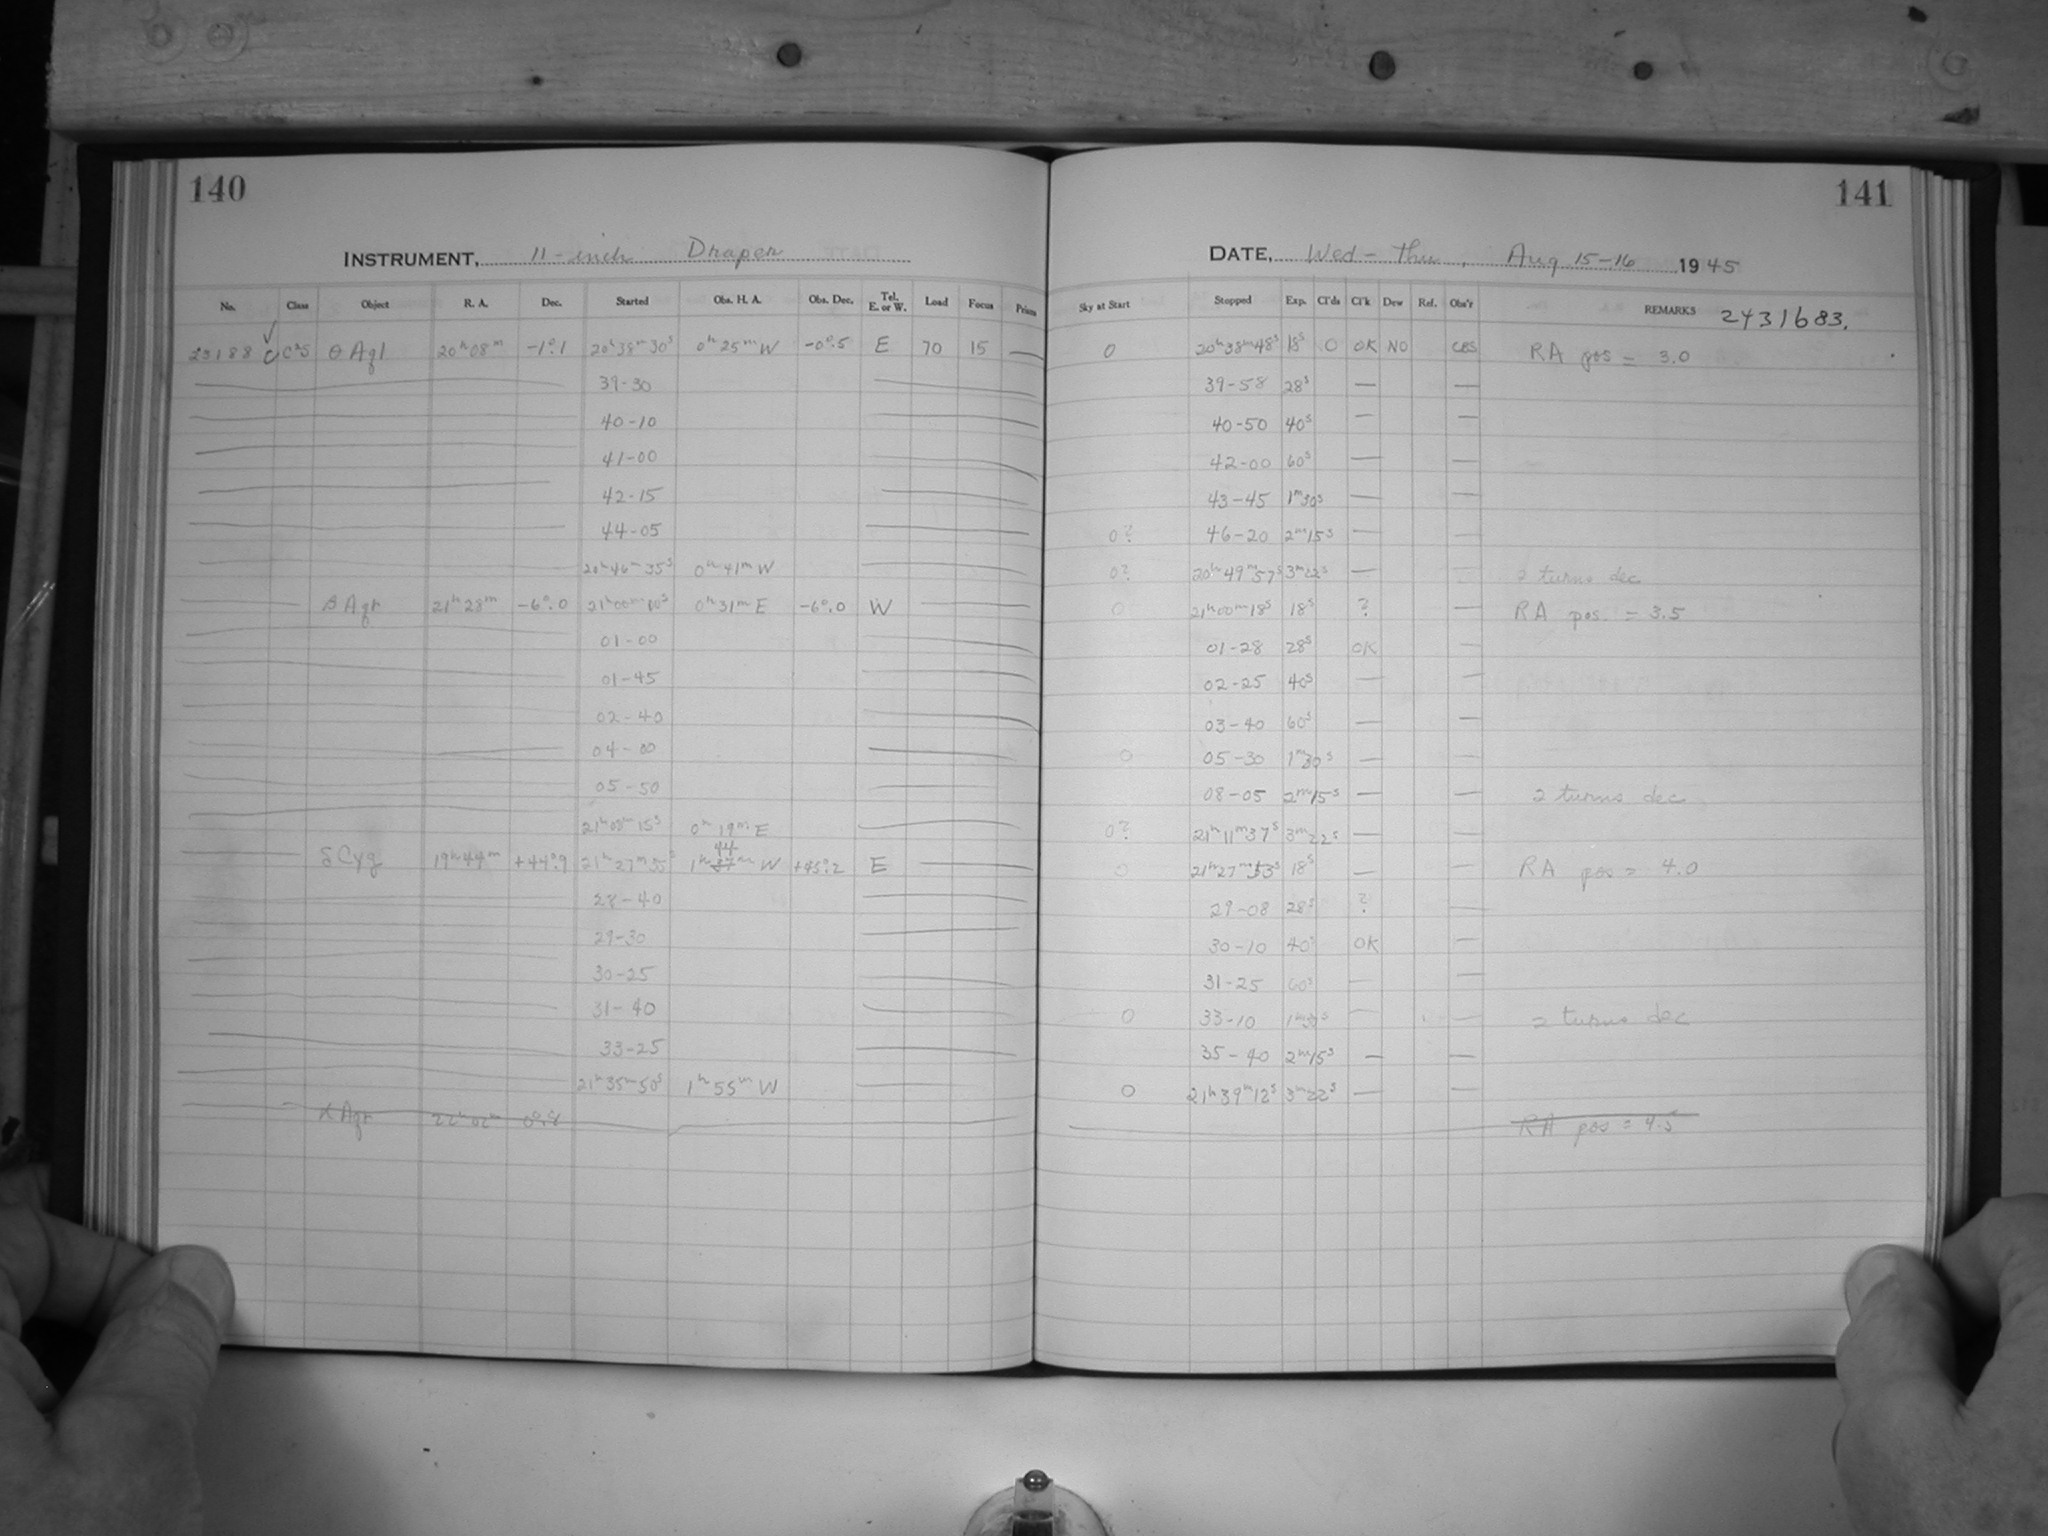 140
INSTRUMENT, 11-inch Draper
No. Class Object R. A. Dec. Started Obs. H. A. Obs. Dec. Tel. E. or W. Load Focus Prism
23188 C25 θ Aql 20ʰ08ᵐ -1°.1 20ʰ38ᵐ30ˢ 0ʰ25ᵐW -0°.5 E 70 15 —
39-30
40-10
41-00
42-15
44-05
20ʰ46ᵐ35ˢ 0ʰ41ᵐW
β Aqr 21ʰ28ᵐ -6°.0 21ʰ00ᵐ00ˢ 0ʰ31ᵐE -6°.0 W
01-00
01-45
02-40
04-00
05-50
21ʰ08ᵐ15ˢ 0ʰ19ᵐE
δ Cyg 19ʰ44ᵐ +44°.9 21ʰ27ᵐ35ˢ 1ʰ44ᵐ W +45°.2 E
28-40
29-30
30-25
31-40
33-25
21ʰ35ᵐ50ˢ 1ʰ55ᵐW
α Aqr 22ʰ02ᵐ 0°.8
141
DATE, Wed - Thu, Aug 15-16 1945
Sky at Start Stopped Exp. Cl'ds Cl'k Dew Ref. Obs'r REMARKS 2431683.
0 20ʰ38ᵐ48ˢ 18ˢ 0 OK NO CBS RA pos = 3.0
39-58 28ˢ — —
40-50 40ˢ — —
42-00 60ˢ — —
43-45 1ᵐ30ˢ — —
0? 46-20 2ᵐ15ˢ — —
0? 20ʰ49ᵐ57ˢ 3ᵐ22ˢ — — 2 turns dec
0 21ʰ00ᵐ18ˢ 18ˢ ? — RA pos. = 3.5
01-28 28ˢ OK —
02-25 40ˢ — —
03-40 60ˢ — —
0 05-30 1ᵐ30ˢ — —
08-05 2ᵐ15ˢ — — 2 turns dec
0? 21ʰ11ᵐ37ˢ 3ᵐ22ˢ — —
0 21ʰ27ᵐ53ˢ 18ˢ — — RA pos = 4.0
29-08 28ˢ ? —
30-10 40ˢ OK —
31-25 60ˢ — —
0 33-10 1ᵐ30ˢ — — 2 turns dec
35-40 2ᵐ15ˢ — —
0 21ʰ39ᵐ12ˢ 3ᵐ22ˢ — —
RA pos = 4.5